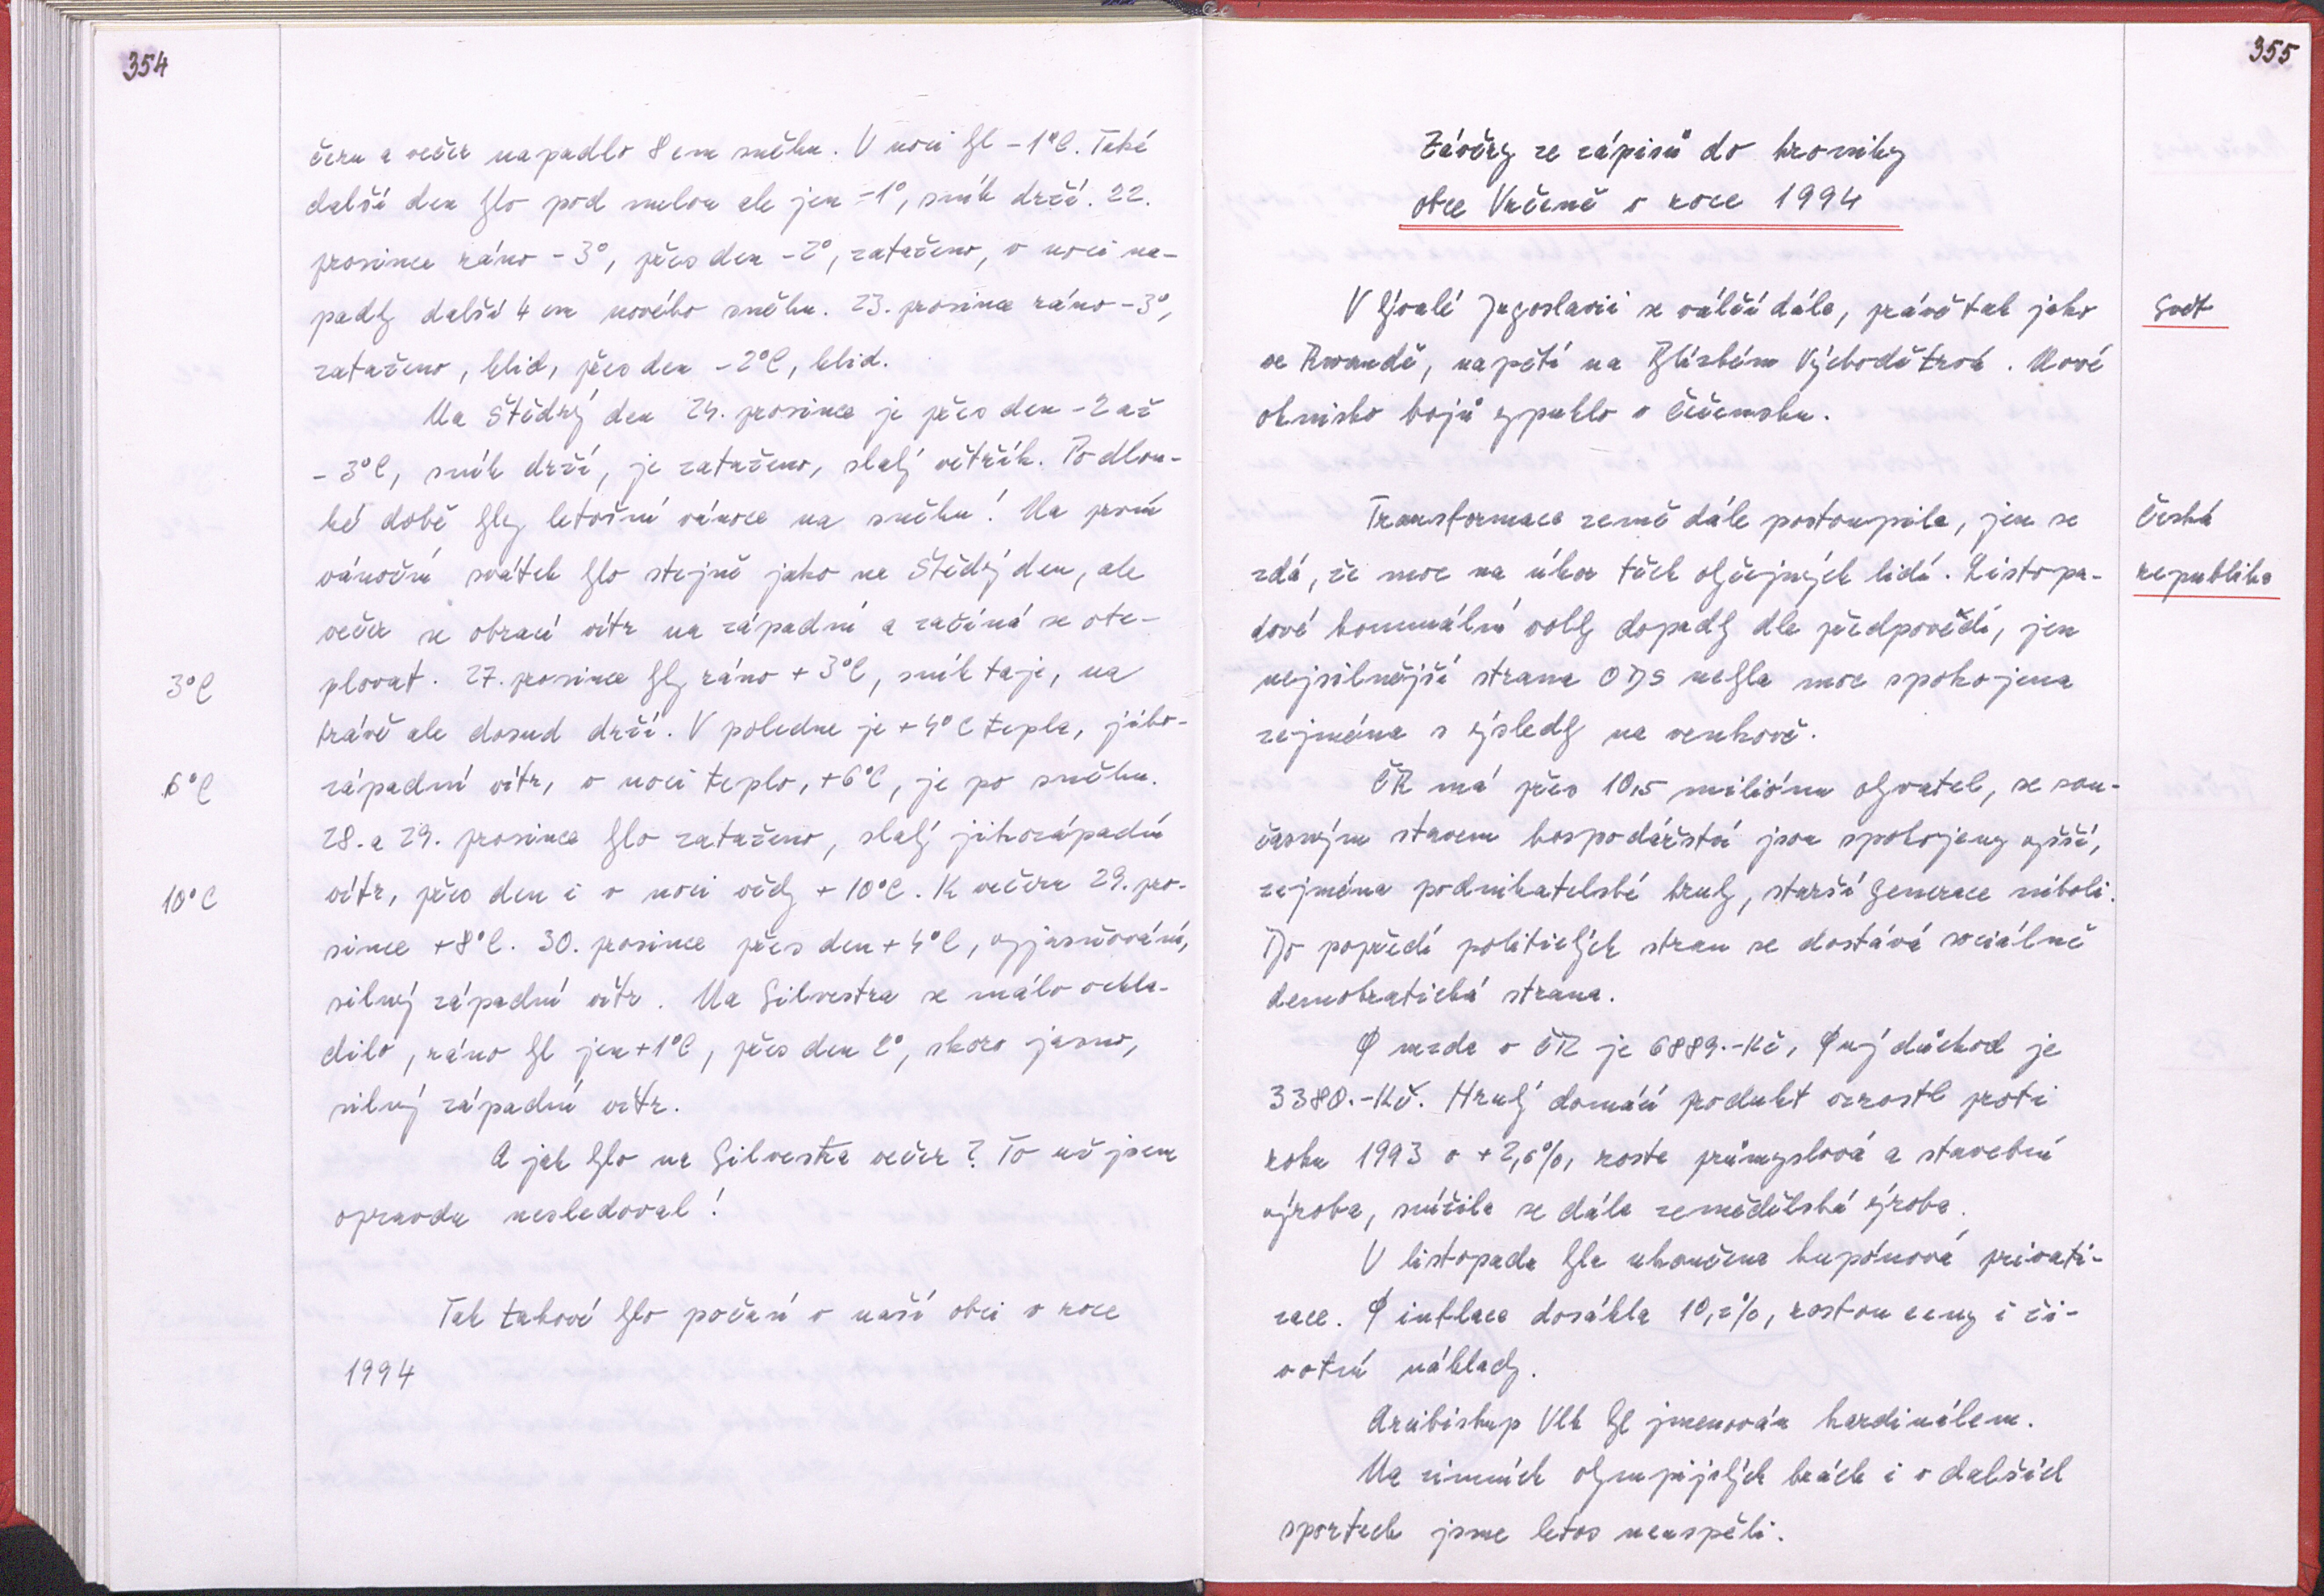 354
čeru a večer napadlo 8 cm sněhu. V noci byl -1°C. Také
další den bylo pod nulou ale jen -1°, sníh drží. 22.
prosince ráno -3°, přes den -2°, zataženo, v noci na-
padly další 4 cm nového sněhu. 23. prosince ráno -3°,
zataženo, klid, přes den -2°C, klid.
Na Štědrý den 24. prosince je přes den -2 až
-3°C, sníh drží, je zataženo, slabý větřík. Po dlou-
hé době byly letošní vánoce na sněhu! Na první
vánoční svátek bylo stejně jako na Štědrý den, ale
večer se obrací vítr na západní a začíná se ote-
3°C
plovat. 27. prosince byly ráno +3°C, sníh taje, na
trávě ale dosud drží. V poledne je +4°C tepla, jiho-
6°C
západní vítr, v noci teplo, +6°C, je po sněhu.
28. a 29. prosince bylo zataženo, slabý jihozápadní
10°C
vítr, přes den i v noci vždy +10°C. K večeru 29. pro-
since +8°C. 30. prosince přes den +4°C, vyjasňování,
silný západní vítr. Na Silvestra se málo ochla-
dilo, ráno byl jen +1°C, přes den 2°, skoro jasno,
silný západní vítr.
A jak bylo na Silvestra večer? To už jsem
opravdu nesledoval!
Tak takové bylo počasí v naší obci v roce
1994
355
Závěry ze zápisů do kroniky
obce Vrčeně v roce 1994
Svět
V bývalé Jugoslavii se válčí dále, právě tak jako
ve Rwandě, napětí na Blízkém Východě trvá. Nové
ohnisko bojů vypuklo v Čečensku.
Česká
republika
Transformace země dále postoupila, jen se
zdá, že moc na úkor těch obyčejných lidí. Listopa-
dové komunální volby dopadly dle předpovědí, jen
nejsilnější strana ODS nebyla moc spokojena
zejména s výsledky na venkově.
ČR má přes 10,5 miliónu obyvatel, se sou-
časným stavem hospodářství jsou spokojeny vyšší,
zejména podnikatelské kruhy, starší generace nikoli.
Do popředí politických stran se dostává sociálně
demokratická strana.
Ø mzda v ČR je 6889.-Kč, Øný důchod je
3380.-Kč. Hrubý domácí produkt vzrostl proti
roku 1993 o +2,6%, roste průmyslová a stavební
výroba, snížila se dále zemědělská výroba.
V listopadu byla ukončena kupónová privati-
zace. Ø inflace dosáhla 10,2%, rostou ceny i ži-
votní náklady.
Arcibiskup Vlk byl jmenován kardinálem.
Na zimních olympijských hrách i v dalších
sportech jsme letos neuspěli.